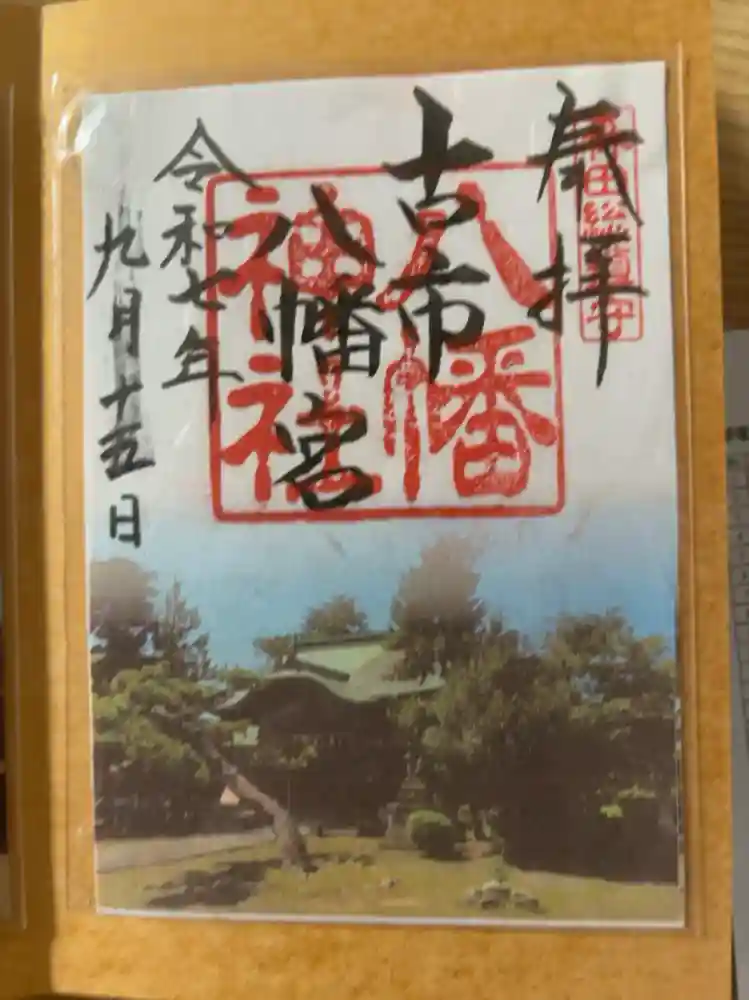 田総鎮守
奉拝
古市
八幡宮
八幡
神社
令和七年
九月十五日